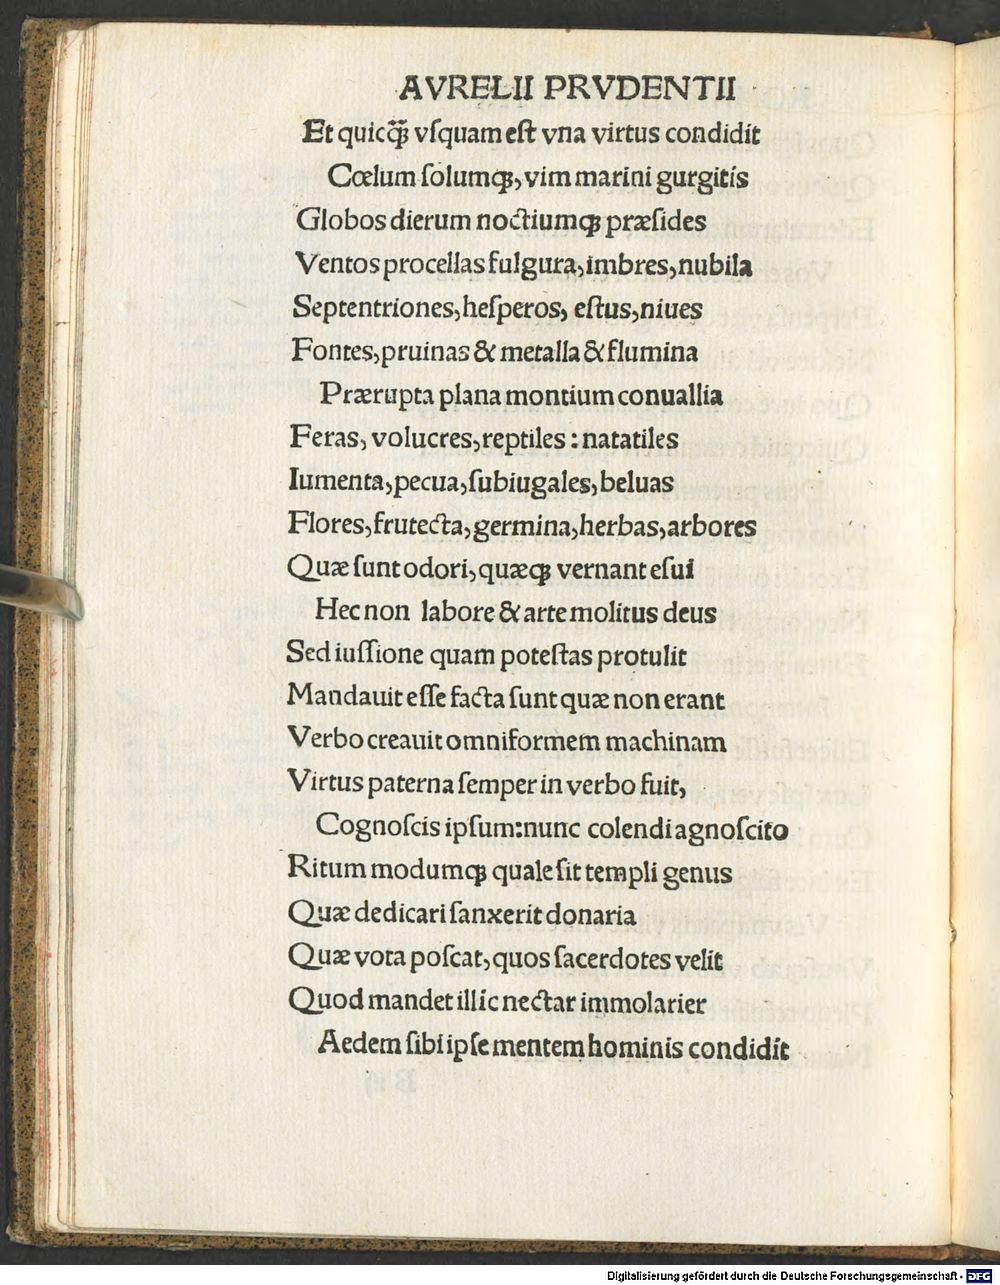 AVRELII PRVDENTII
Et quicq̃ꝫ vſquam eſt vna virtus condidit
Cœlum ſolumqꝫ, vim marini gurgitis
Globos dierum noctiumqꝫ præſides
Ventos procellas fulgura, imbres, nubila
Septentriones, heſperos, eſtus, niues
Fontes, pruinas & metalla & flumina
Prærupta plana montium conuallia
Feras, volucres, reptiles : natatiles
Iumenta, pecua, ſubiugales, beluas
Flores, frutecta, germina, herbas, arbores
Quæ ſunt odori, quæqꝫ vernant eſui
Hec non labore & arte molitus deus
Sed iuſſione quam poteſtas protulit
Mandauit eſſe facta ſunt quæ non erant
Verbo creauit omniformem machinam
Virtus paterna ſemper in verbo fuit,
Cognoſcis ipſum: nunc colendi agnoſcito
Ritum modumqꝫ quale ſit templi genus
Quæ dedicari ſanxerit donaria
Quæ vota poſcat, quos ſacerdotes velit
Quod mandet illic nectar immolarier
Aedem ſibi ipſe mentem hominis condidit
Digitalisierung gefördert durch die Deutsche Forschungsgemeinschaft - DFG